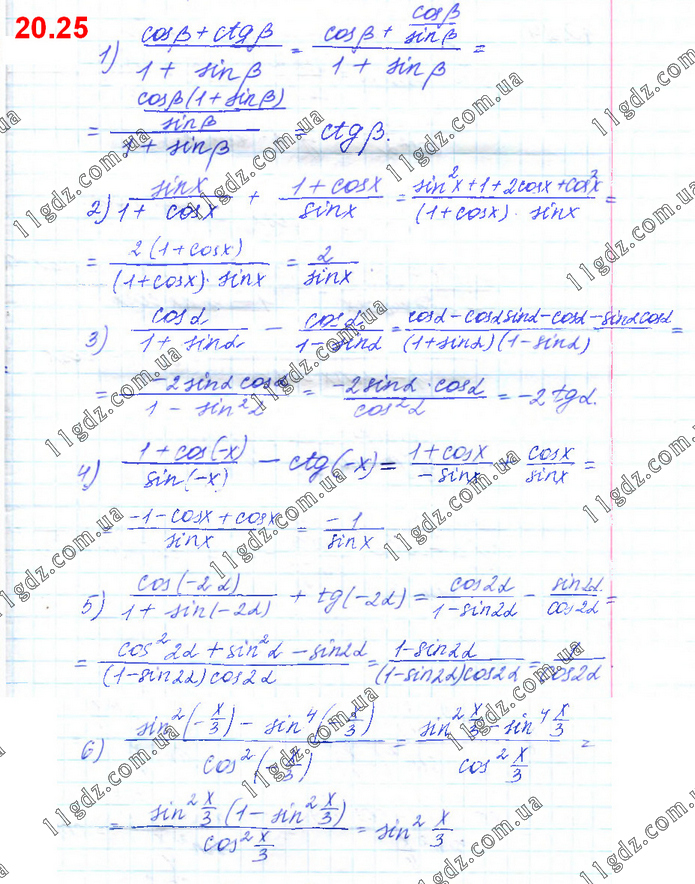 20.25
1) (cosβ + ctgβ)/(1 + sinβ) = (cosβ + cosβ/sinβ)/(1 + sinβ) =
= (cosβ(1 + sinβ)/sinβ)/(1 + sinβ) = ctgβ.
2) sinx/(1 + cosx) + (1 + cosx)/sinx = (sin²x + 1 + 2cosx + cos²x)/((1 + cosx) · sinx) =
= 2(1 + cosx)/((1 + cosx) · sinx) = 2/sinx
3) cosα/(1 + sinα) − cosα/(1 − sinα) = (cosα − cosα sinα − cosα − sinα cosα)/((1 + sinα)(1 − sinα)) =
= −2sinα cosα/(1 − sin²α) = −2sinα · cosα/cos²α = −2tgα.
4) (1 + cos(−x))/sin(−x) − ctg(−x) = (1 + cosx)/(−sinx) + cosx/sinx =
= (−1 − cosx + cosx)/sinx = −1/sinx
5) cos(−2α)/(1 + sin(−2α)) + tg(−2α) = cos2α/(1 − sin2α) − sin2α/cos2α =
= (cos²2α + sin²α − sin2α)/((1 − sin2α)cos2α) = (1 − sin2α)/((1 − sin2α)cos2α) = /cos2α
6) (sin²(−x/3) − sin⁴(−x/3))/cos²(−x/3) = (sin²x/3 − sin⁴x/3)/cos²x/3 =
= sin²x/3 (1 − sin²x/3)/cos²x/3 = sin²x/3
11gdz.com.ua